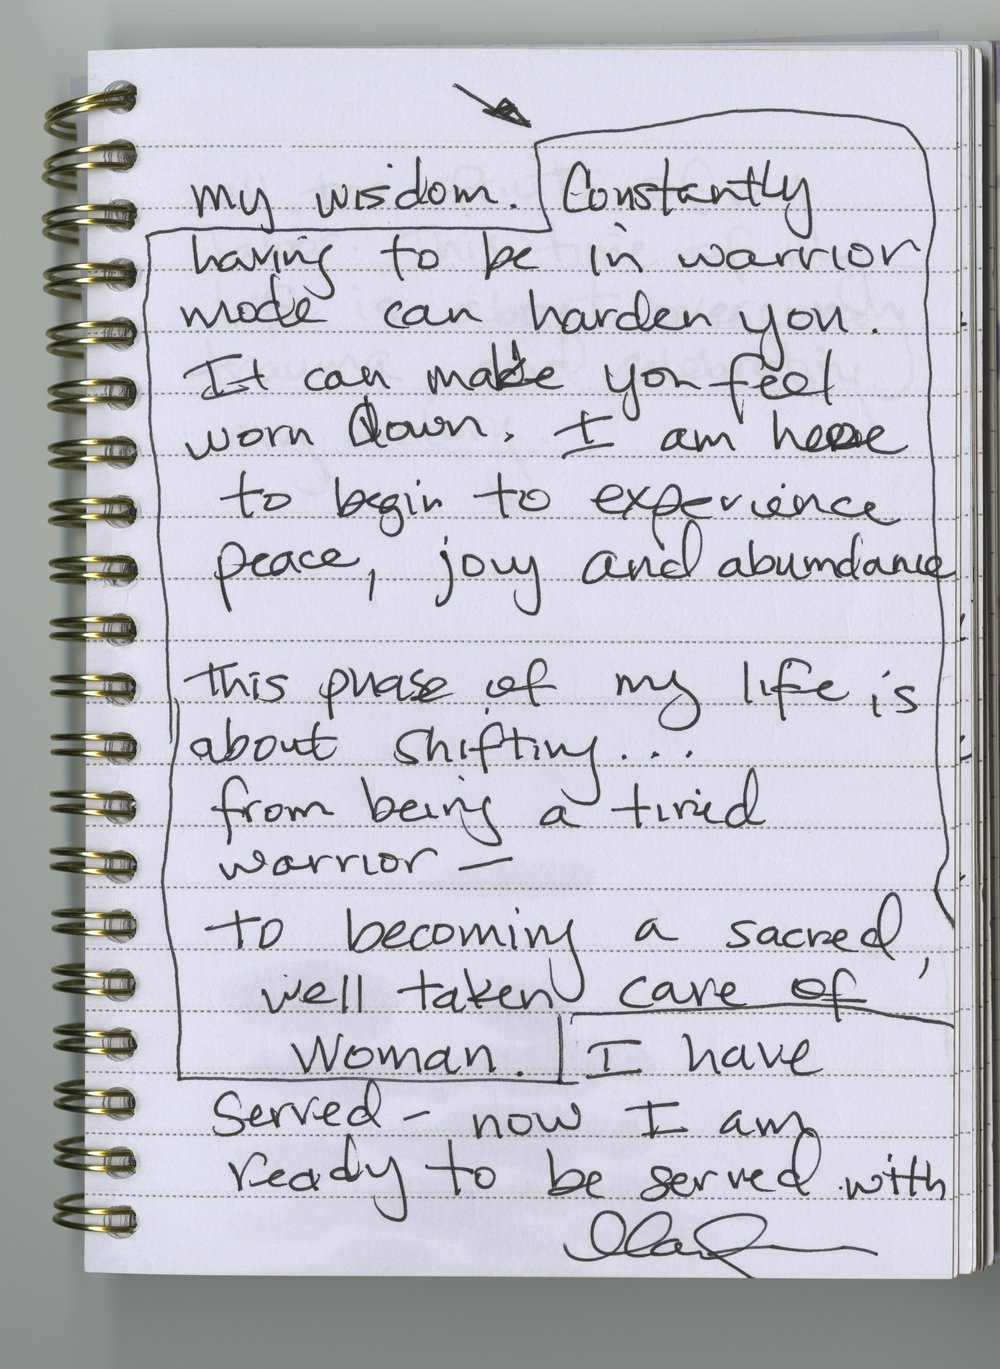 my wisdom. Constantly
having to be in warrior
mode can harden you.
It can make you feel
worn down. I am here
to begin to experience
peace, joy and abundance
This phase of my life is
about shifting...
from being a tired
warrior —
to becoming a sacred,
well taken care of
Woman. I have
served — now I am
ready to be served with